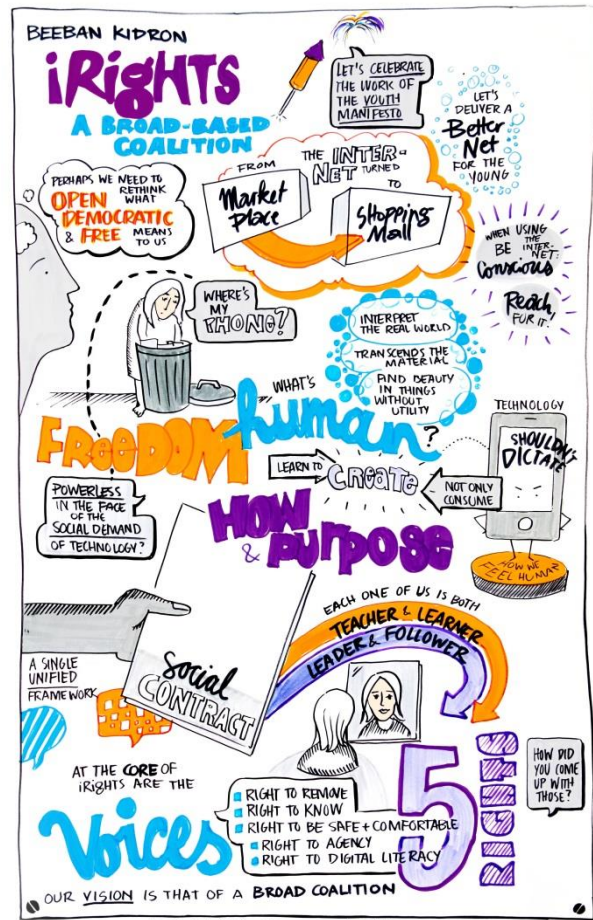 BEEBAN KIDRON
iRiGHTS
A BROAD-BASED
COALITION
LET'S CELEBRATE
THE WORK OF
THE YOUTH
MANIFESTO
LET'S
DELIVER A
Better
Net
FOR THE
YOUNG
PERHAPS WE NEED TO
RETHINK
WHAT
OPEN
DEMOCRATIC
& FREE MEANS
TO US
FROM
THE INTER-
NET TURNED
TO
Market
place
Shopping
Mall
WHEN USING
THE
BE INTER-
NET:
Conscious
Reach
FOR IT!
WHERE'S
MY
PHONE?
INTERPRET
THE REAL WORLD
TRANSCENDS THE
MATERIAL
FIND BEAUTY
IN THINGS
WITHOUT
UTILITY
WHAT'S
FREEDOM
human?
TECHNOLOGY
SHOULDN'T
DICTATE
HOW WE
FEEL HUMAN
LEARN TO
CREATE
NOT ONLY
CONSUME
POWERLESS
IN THE FACE
OF THE
SOCIAL DEMAND
OF TECHNOLOGY?
HOW
& PURPOSE
EACH ONE OF US IS BOTH
TEACHER & LEARNER
LEADER & FOLLOWER
A SINGLE
UNIFIED
FRAMEWORK
Social
CONTRACT
AT THE CORE OF
iRiGHTS ARE THE
Voices
RIGHT TO REMOVE
RIGHT TO KNOW
RIGHT TO BE SAFE + COMFORTABLE
RIGHT TO AGENCY
RIGHT TO DIGITAL LITERACY
5
RIGHTS
HOW DID
YOU COME
UP WITH
THOSE?
OUR VISION IS THAT OF A BROAD COALITION